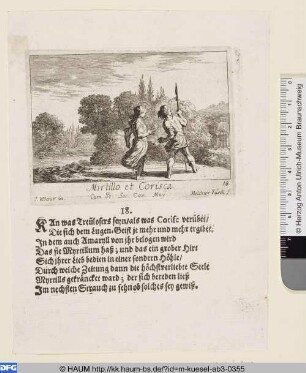 Mirtillo et Corisca
Cum Pr. Sac. Caes. May.
18
Melchior Küsell f.
18.
KAn was Treülosers seyn als was Corisc verübet/
Die sich dem Lügen-Geist je mehr und mehr ergibet/
In dem auch Amaryll von ihr belogen wird
Das sie Myrtillum haß; und das ein grober Hirt
Sich ihrer Lieb bedien in einer sondern Höhle/
Durch welche Zeitung dann die höchstverliebte Seele
Myrtills gekräncket ward; der sich bereden ließ
Im nechsten Strauch zu sehn ob solches sey gewiß.
© Herzog Anton Ulrich-Museum Braunschweig
DFG
© HAUM http://kk.haum-bs.de/?id=m-kuesel-ab3-0355